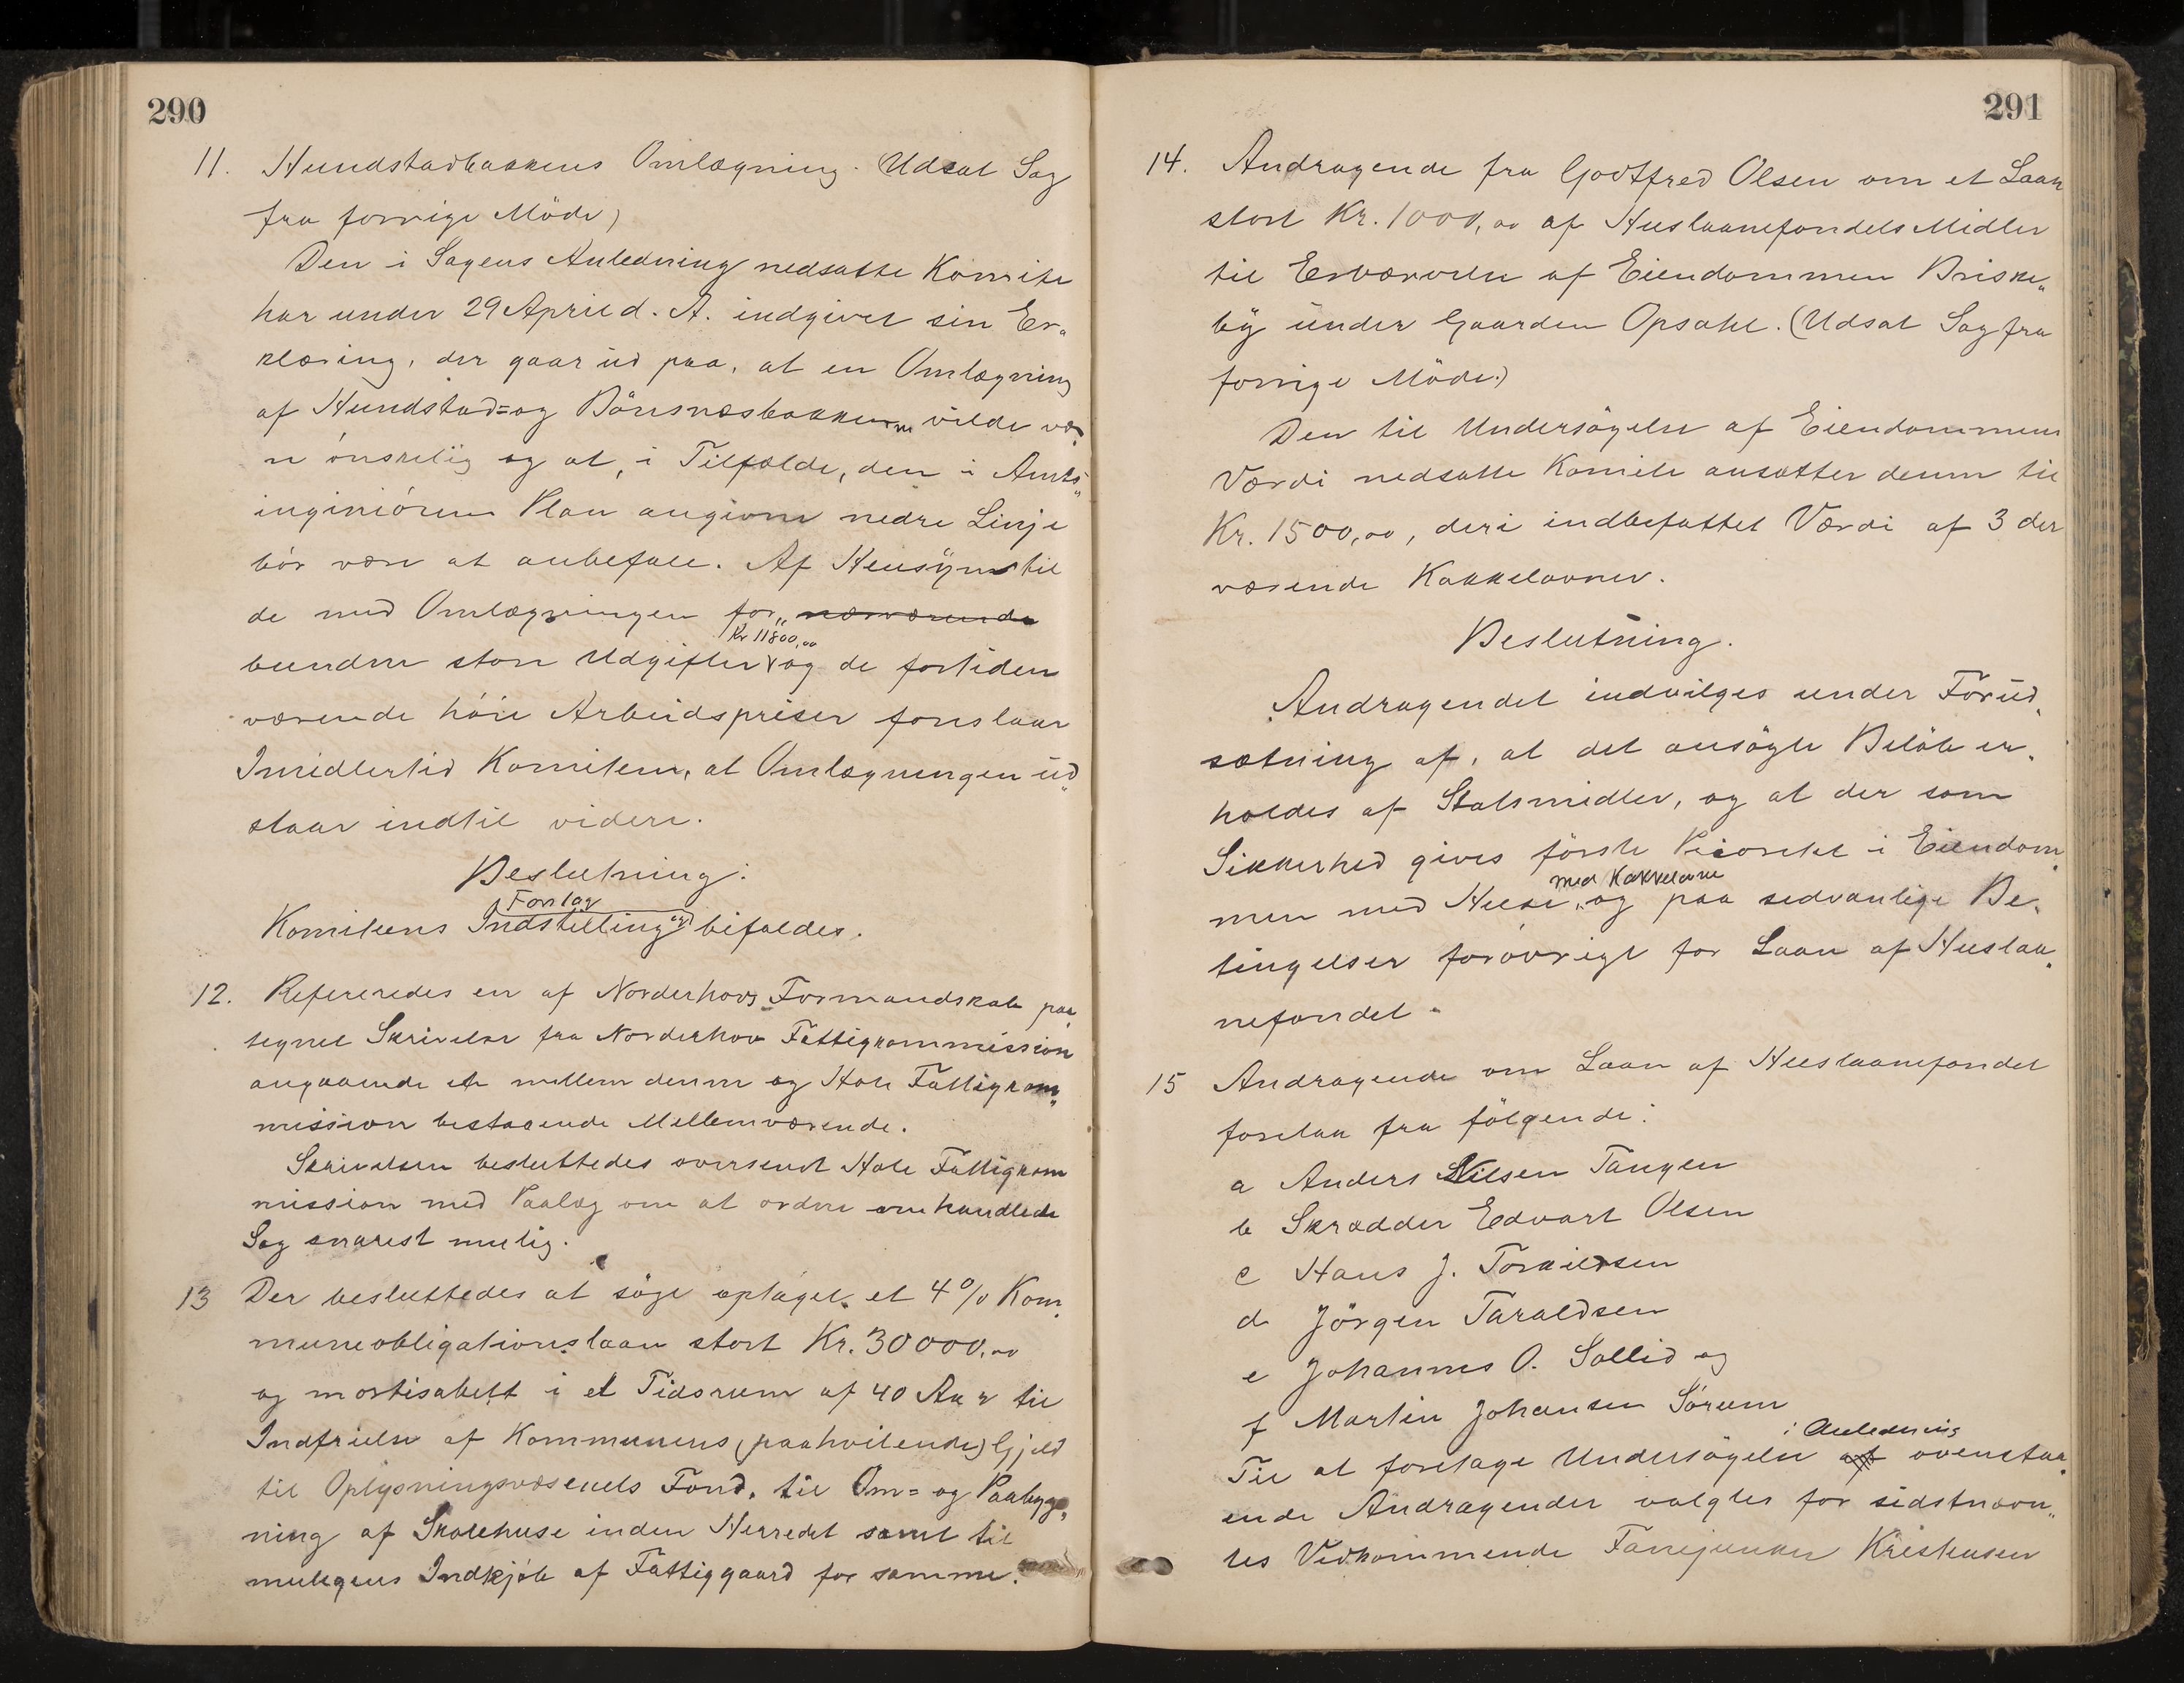 290
11. Hundstadbakkens Omlægning. (Udsat Sag
fra forrige Møde)
Den i Sagens Anledning nedsatte Komite
har under 29 April d. A. indgivet sin Er„
klæring, der gaar ud paa, at en Omlægning
af Hundstad= og Bönsnæsbakkerne vilde væ„
re ønskelig og at, i Tilfælde, den i Amts„
ingeniörens Plan angivne nedre Linje
bör være at anbefale. Af Hensyn til
de med Omlægningen for„ nærværende
bundne store Udgifter Kr 11800,00 og de fortiden
værende höie Arbeidspriser foreslaar
Imidlertid Komiteen, at Omlægningen ud„
staar indtil videre.
Beslutning:
Forslag
Komiteens Indstilling bifaldes.
12. Refereredes en af Norderhovs Formandskab paa„
tegnet Skrivelse fra Norderhov Fattigkommission
angaaende et mellem denne og Hole Fattigkom„
mission bestaaende Mellemværende.
Skrivelsen besluttedes oversendt Hole Fattigkom
mission med Paalæg om at ordne omhandlede
Sag snarest mulig.
13 Der besluttedes at söge optaget et 4 % Kom„
muneobligationslaan stort Kr. 30000,00
og mortisabelt i et Tidsrum af 40 Aar til
Indfrielse af Kommunens (paahvilende) Gjeld
til Oplysningsvæsenets Fond, til Om= og Paabyg„
ning af Skolehuse inden Herredet samt til
muligens Indkjöb af Fattiggaard for samme.
291
14. Andragende fra Godtfred Olsen om et Laan
stort Kr. 1000,00 af Huslaanefondets Midler
til Erhvervelse af Eiendommen Briske„
by under Gaarden Opsahl. (Udsat Sag fra
forrige Møde.)
Den til Undersögelse af Eiendommens
Værdi nedsatte Komite ansætter denne til
Kr. 1500,00, deri indbefattet Værdi af 3 der
værende Kakkelovner.
Beslutning.
Andragendet indvilges under Forud„
sætning af, at det ansögte Belöb er„
holdes af Statsmidler, og at der som
Sikkerhed gives förste Prioritet i Eiendom„
men med Huse, med Kakkelovne og paa sedvanlige Be„
tingelser forövrigt for Laan af Huslaa„
nefondet.
15 Andragende om Laan af Huslaanefondet
forelaa fra fölgende:
a Anders Nilsen Tangen
b Skrædder Edvart Olsen
c Hans J. Torkildsen
d Jörgen Taraldsen
e Johannes O. Sollid og
f Martin Johansen Sörum
Til at foretage Undersögelse i Anledning af ovenstaa„
ende Andragender valgtes for sidstnævn„
tes Vedkommende Fanejunker Kristensen